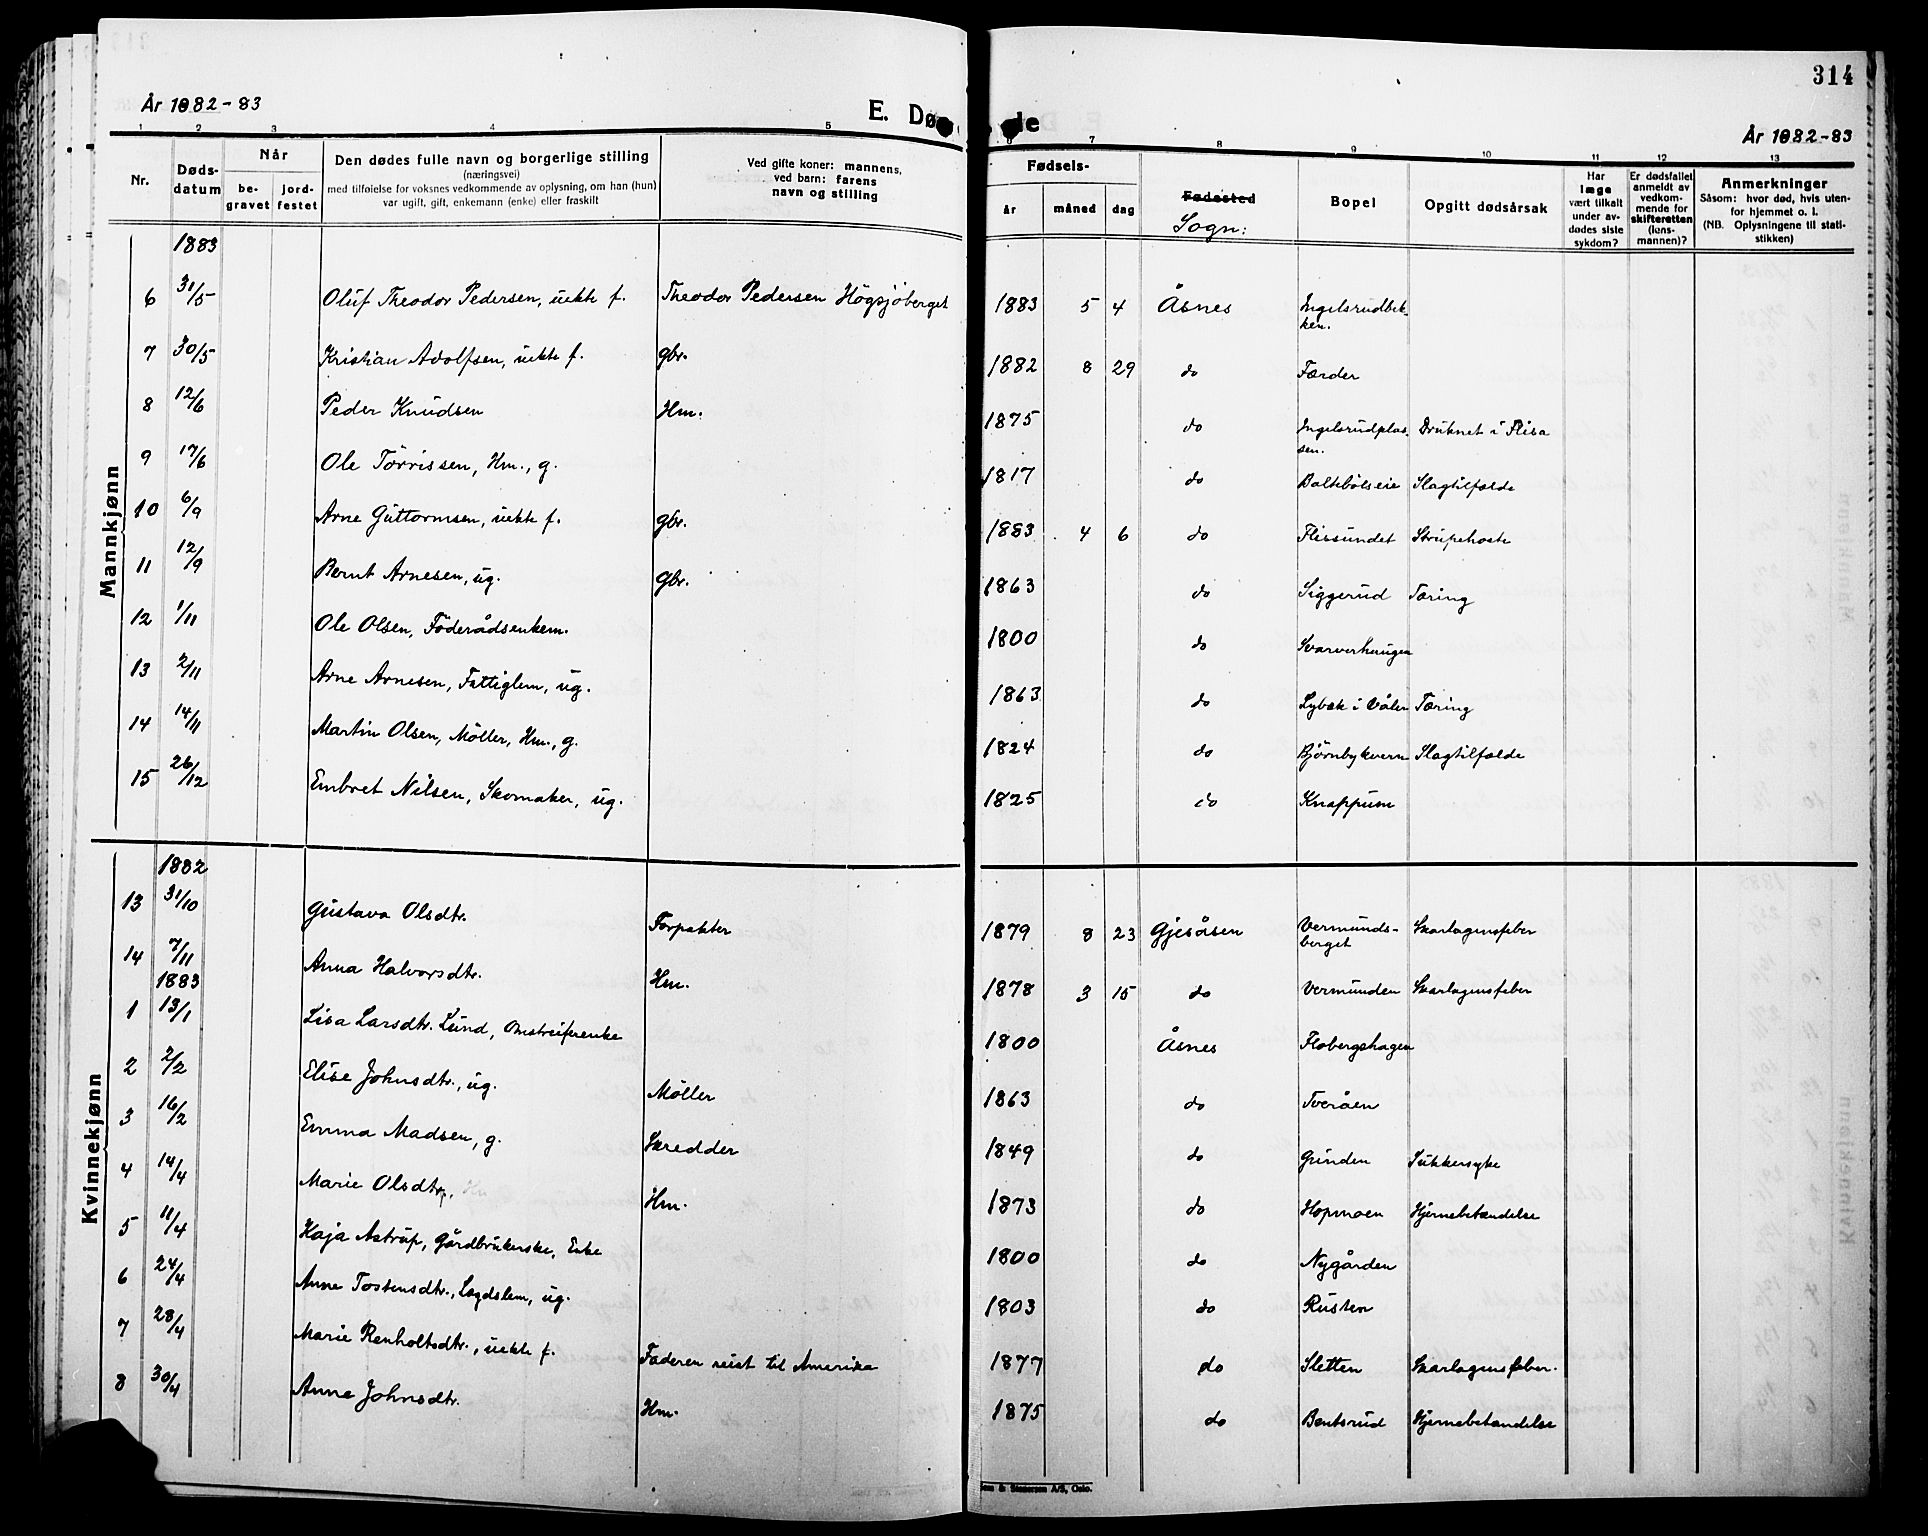 314
År 1882-83
E. Dø de
År 1882-83
1 2 3 4 5 6 7 8 9 10 11 12 13
Nr.
Døds-
datum
Når
be-
gravet
jord-
festet
Den dødes fulle navn og borgerlige stilling
(næringsvei)
med tilføielse for voksnes vedkommende av oplysning, om han (hun)
var ugift, gift, enkemann (enke) eller fraskilt
Ved gifte koner: mannens,
ved barn: farens
navn og stilling
Fødsels-
år måned dag
Fødested
Sogn:
Bopel
Opgitt dødsårsak
Har
læge
vært tilkalt
under av-
dødes siste
sykdom?
Er dødsfallet
anmeldt av
vedkom-
mende for
skifteretten
(lens-
mannen)?
Anmerkninger
Såsom: hvor død, hvis uten-
for hjemmet o. l.
(NB. Oplysningene til stati-
stikken)
Mannkjønn
1883
6 31/5 Oluf Theodor Pedersen, uekte f. Theodor Pedersen Högsjöberget 1883 5 4 Åsnes Ingelsrudbek-
ken.
7 30/5 Kristian Adolfsen, uekte f. gbr. 1882 8 29 do Færder
8 12/6 Peder Knudsen Hm. 1875 do Ingelsrudplas-
sen. Druknet i Flisa
9 17/6 Ole Törrissen, Hm., g. 1817 do Baltebölseie Slagtilfælde
10 6/9 Arne Guttormsen, uekte f. gbr. 1883 4 6 do Flissundet Strupehoste
11 12/9 Bernt Arnesen, ug. gbr. 1863 do Siggerud Tæring
12 1/11 Ole Olsen, Föderådsenkem. 1800 do Svarverhaugen
13 2/11 Arne Arnesen, Fattiglem, ug. 1863 do Lybæk i Våler Tæring
14 14/11 Martin Olsen, Möller, Hm., g. 1824 do Bjørnbykvern Slagtilfælde
15 26/12 Embret Nilsen, Skomaker, ug. 1825 do Knappum
Kvinnekjønn
1882
13 31/10 Gustava Olsdtr. Forpakter 1879 8 23 Gjesåsen Vermunds-
berget Skarlagensfeber
14 7/11 Anna Halvorsdtr. Hm. 1878 3 15 do Vermunden Skarlagensfeber
1883
1 13/1 Lisa Larsdtr. Lund, Omstreiferenke 1800 Åsnes Flobergshagen
2 2/2 Elise Johnsdtr., ug. Möller 1863 do Tveråen
3 16/2 Emma Madsen, g. Skredder 1849 do Grinden Sukkersyke
4 14/4 Marie Olsdtr., Hm. 1873 do Hopmoen Hjernebetændelse
5 11/4 Kaja Astrup, Gårdbrukerske, Enke 1800 do Nygården
6 24/4 Anne Tostensdtr., Lægdslem, ug. 1803 do Rusten
7 28/4 Marie Renholtsdtr., uekte f. Faderen reist til Amerika 1877 do Sletten Skarlagensfeber.
8 30/4 Anne Johnsdtr. Hm. 1875 do Bentsrud Hjernebetændelse
A/S, Oslo.